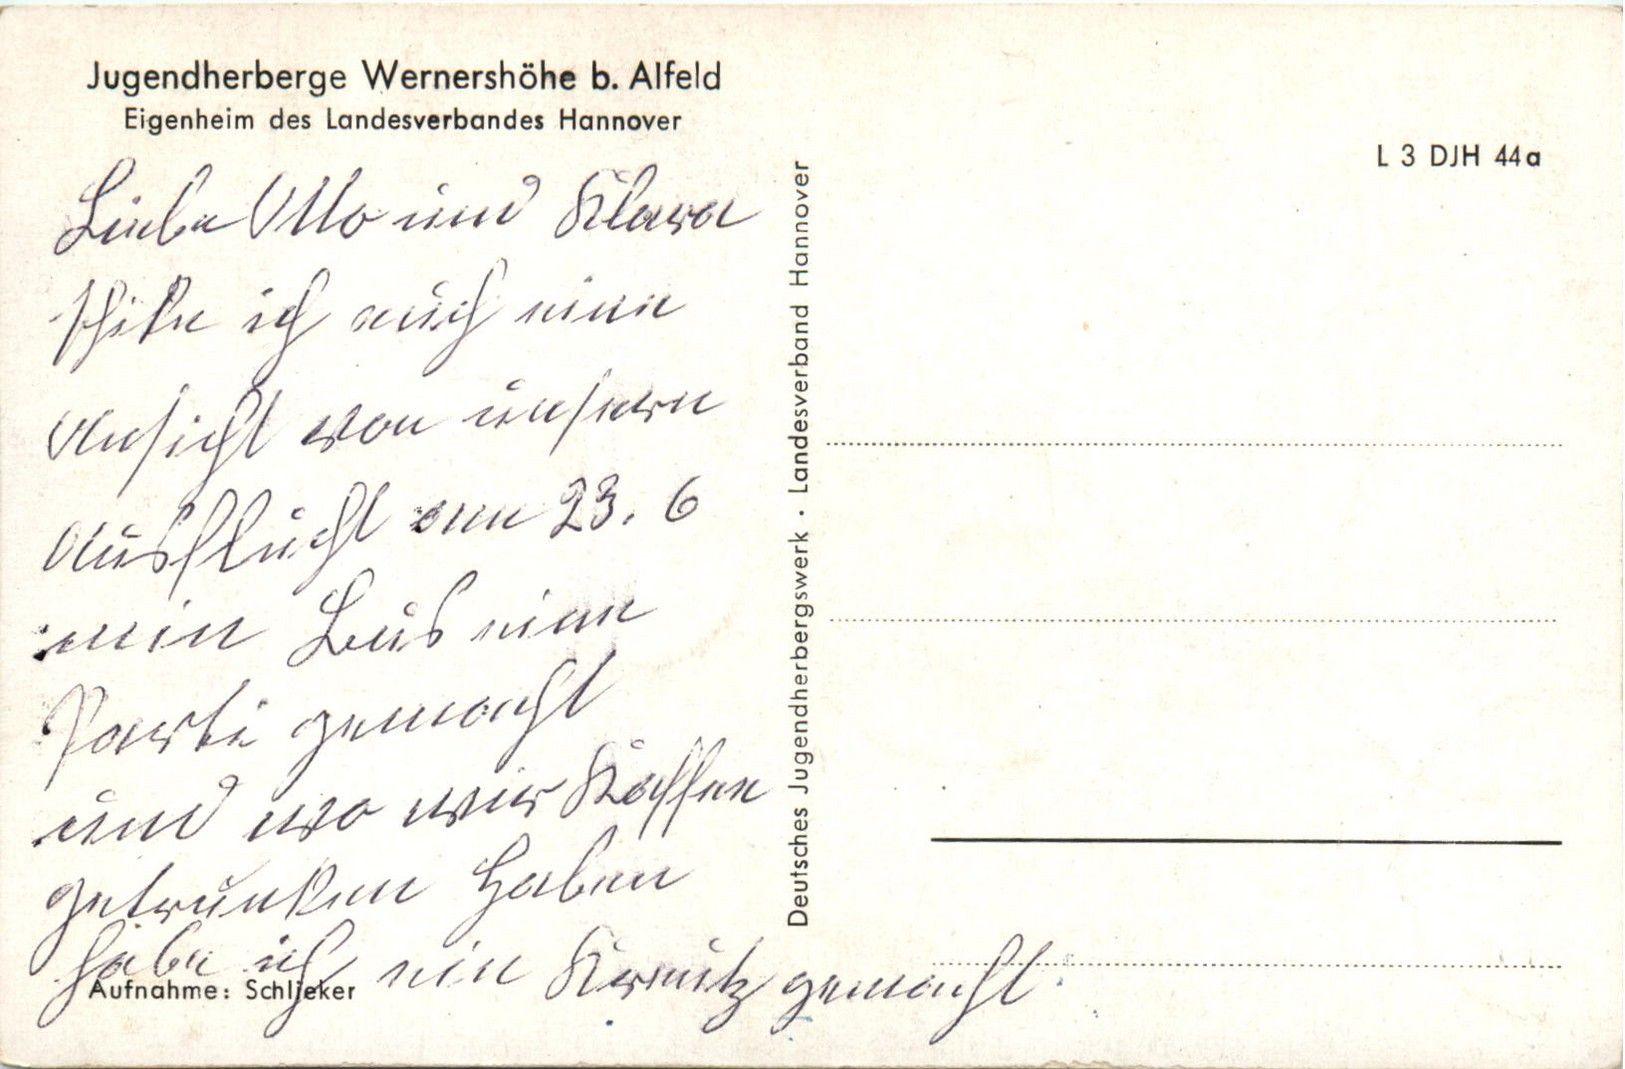 Jugendherberge Wernershöhe b. Alfeld
Eigenheim des Landesverbandes Hannover
L 3 DJH 44a
Liebe Otto und Klara
schike ich euch eine
Ansicht von unsern
Ausflucht am 23. 6
Bus eine
Parti gemacht
und wo wir Kaffee
getrunken haben
habe ich ein Kreutz gemacht.
Aufnahme: Schlieker
Deutsches Jugendherbergswerk · Landesverband Hannover